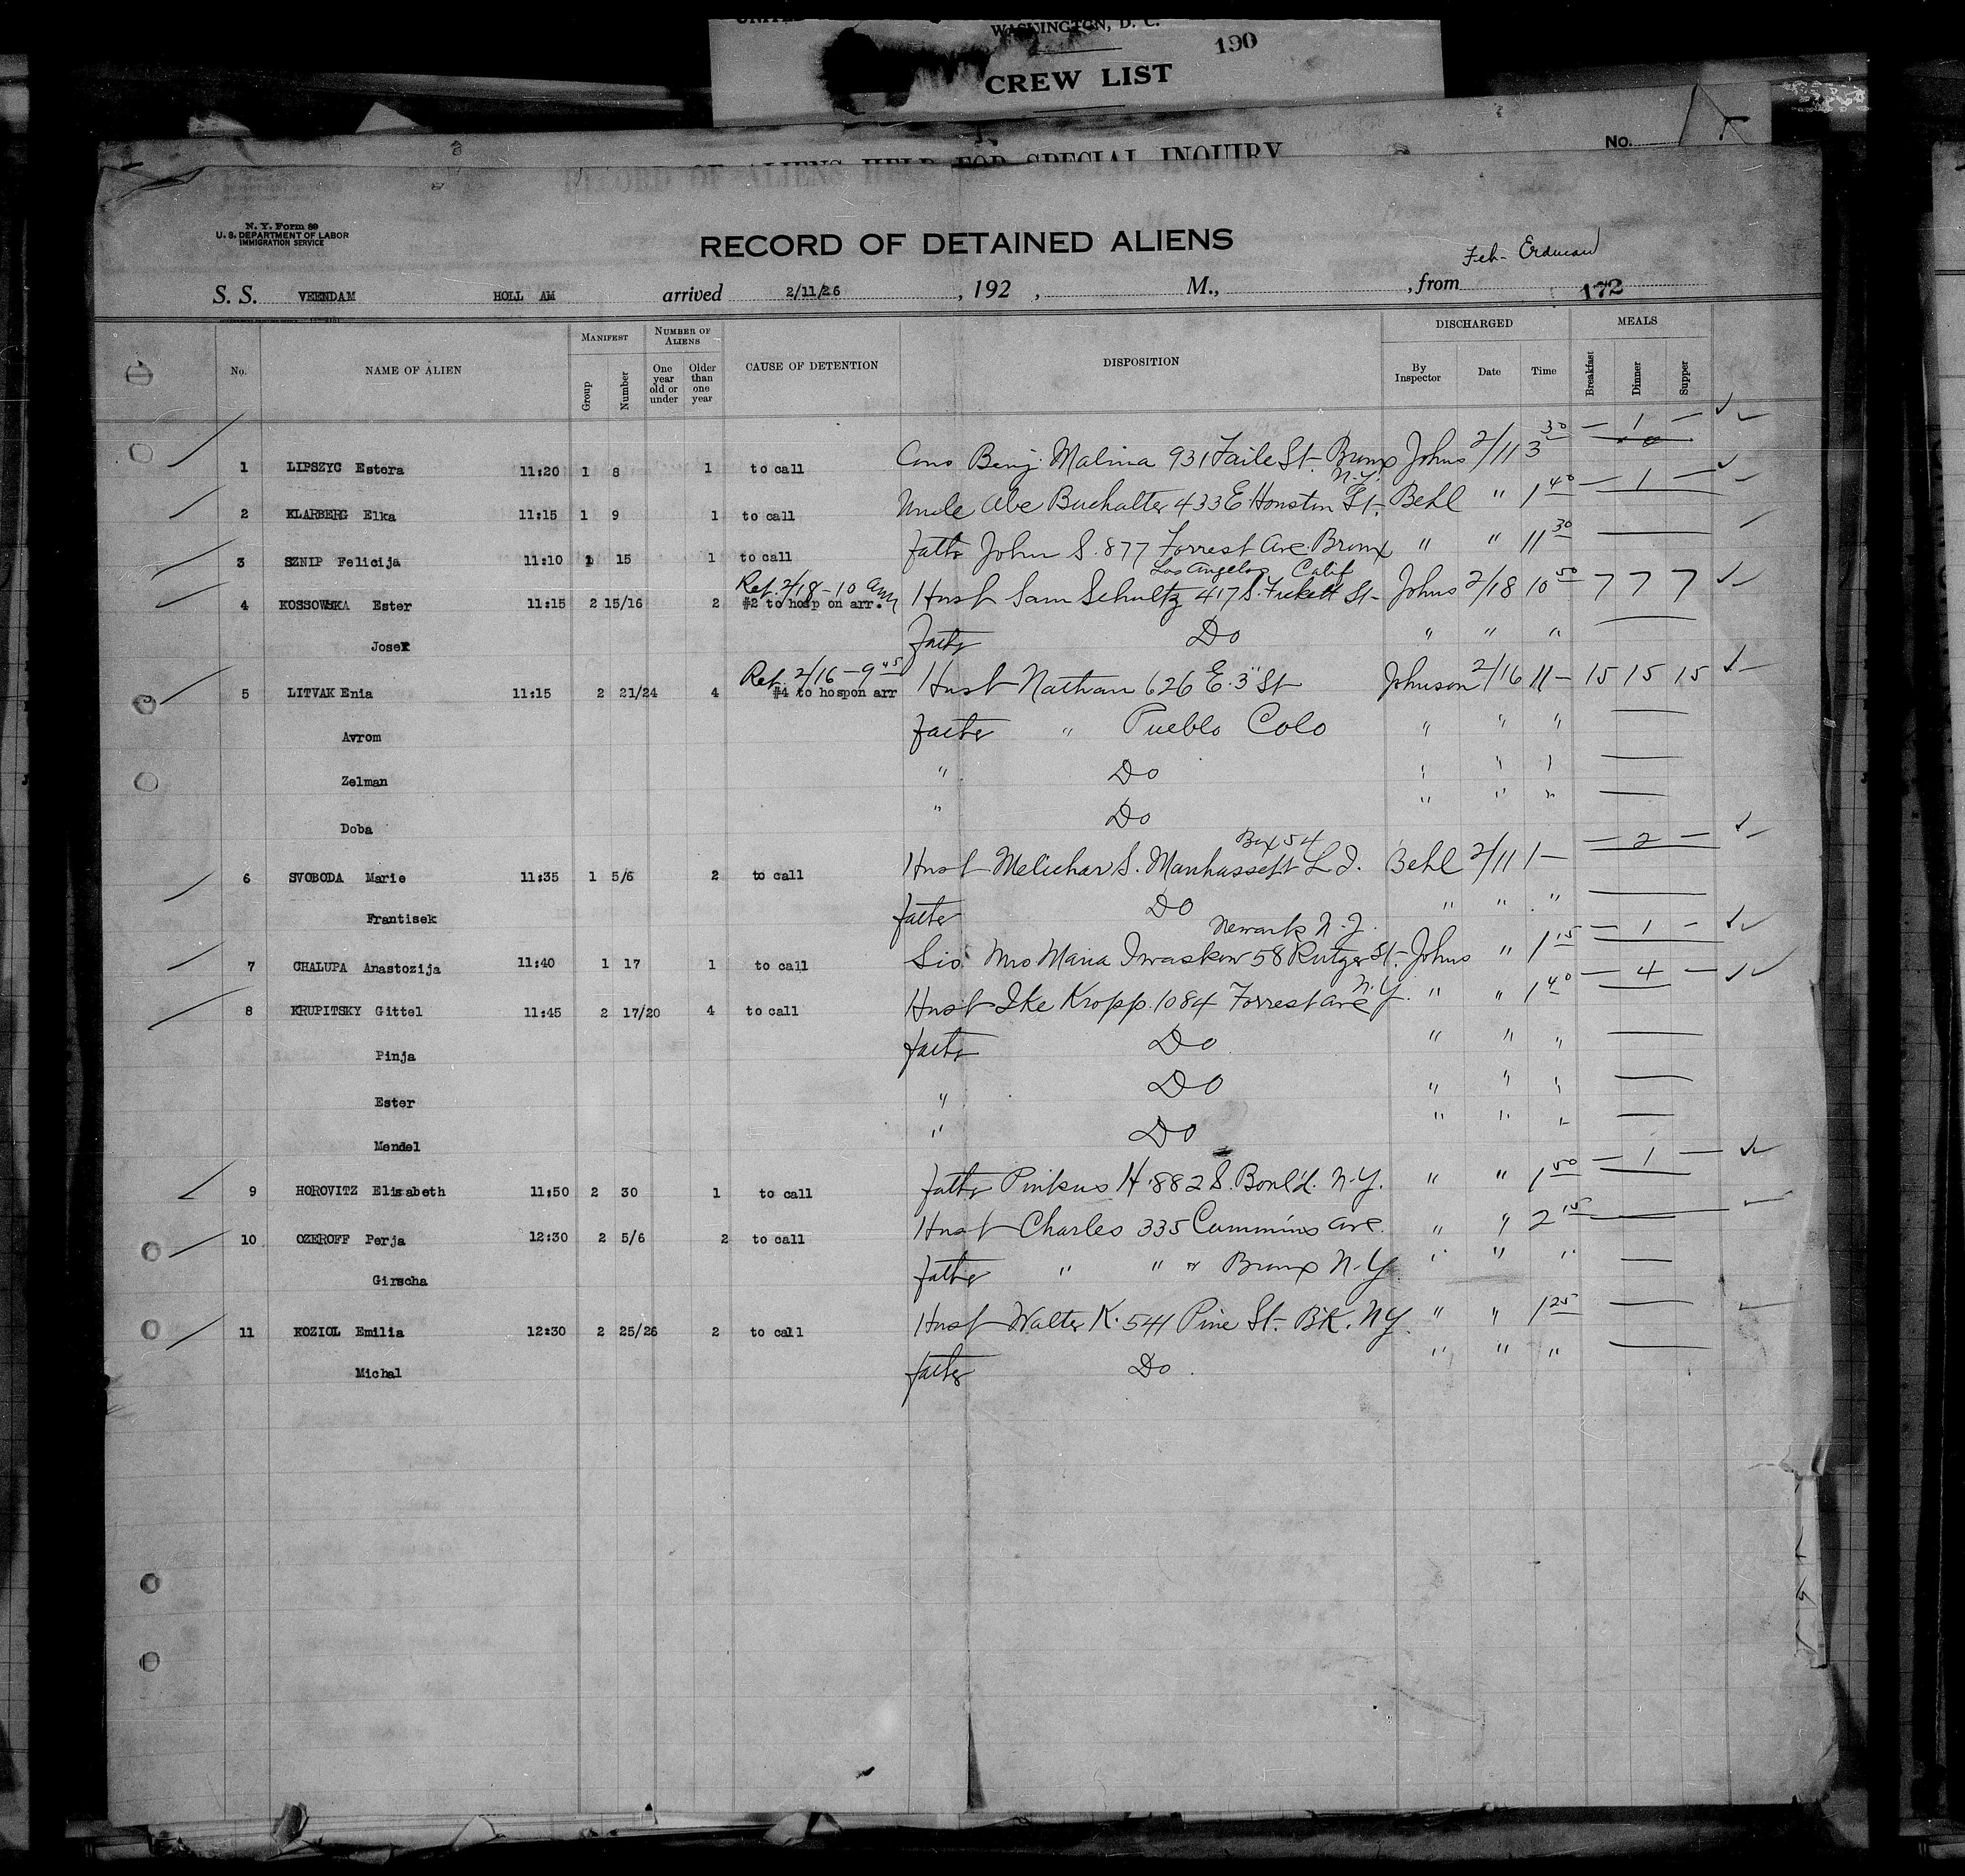 WASHINGTON, D. C.
190
CREW LIST
No.
RECORD OF ALIENS HELD FOR SPECIAL INQUIRY
N. Y. Form 89
U. S. DEPARTMENT OF LABOR
IMMIGRATION SERVICE
RECORD OF DETAINED ALIENS
Feb- Erdman
S. S. VEENDAM HOLL AM arrived 2/11/26, 192 , M., , from 172
No. NAME OF ALIEN MANIFEST Group Number NUMBER OF ALIENS One year old or under Older than one year CAUSE OF DETENTION DISPOSITION DISCHARGED By Inspector Date Time MEALS Breakfast Dinner Supper
1 LIPSZYC Estera 11:20 1 8 1 to call Cous Benj. Malina 931 Faile St- Bronx Johns 2/11 3 30 — 1 —
N.Y.
2 KLARBERG Elka 11:15 1 9 1 to call Uncle Abe Buchalter 433 E. Houston St- Behl " 1 40 — 1 —
3 SZNIP Felicija 11:10 1 15 1 to call fath John S. 877 Forrest Ave. Bronx " " 11 30 —
Ref. 2/18 - 10 am Los Angeles Calif
4 KOSSOWSKA Ester 11:15 2 15/16 2 #2 to hosp on arr. Husb Sam Schultz 417 S. Fickett St- Johns 2/18 10 50 7 7 7
Josef fathr Do " " " —
Ref. 2/16 - 9 45
5 LITVAK Enia 11:15 2 21/24 4 #4 to hospon arr Husb Nathan 626 E. 3" St Johnson 2/16 11 — 15 15 15
Avrom father " Pueblo Colo " " " —
Zelman " Do " " " —
Doba " Do " " " —
Box 54
6 SVOBODA Marie 11:35 1 5/6 2 to call Husb Melichar S. Manhassett L I. Behl 2/11 1 — — 2 —
Frantisek father Do " " " —
Newark N. J.
7 CHALUPA Anastozija 11:40 1 17 1 to call Sis Mrs Maria Iwaskow 58 Rutger St- Johns " 1 15 — 1 —
N.Y.
8 KRUPITSKY Gittel 11:45 2 17/20 4 to call Husb Ike Kropp. 1084 Forrest Ave " " 1 40 — 4 —
Pinja fathr Do " " " —
Ester " Do " " " —
Mendel " Do " " " —
9 HOROVITZ Elizabeth 11:50 2 30 1 to call fathr Pinkus H. 882 S. Boul'd. N.Y. " " 1 50 — 1 —
10 OZEROFF Perja 12:30 2 5/6 2 to call Husb Charles 335 Cummins Ave. " " 2 15 —
Girscha father " " " Bronx N.Y. " " " —
11 KOZIOL Emilia 12:30 2 25/26 2 to call Husb Walter K. 541 Pine St- BK. NY. " " 1 25 —
Michal fathr Do . " " " —